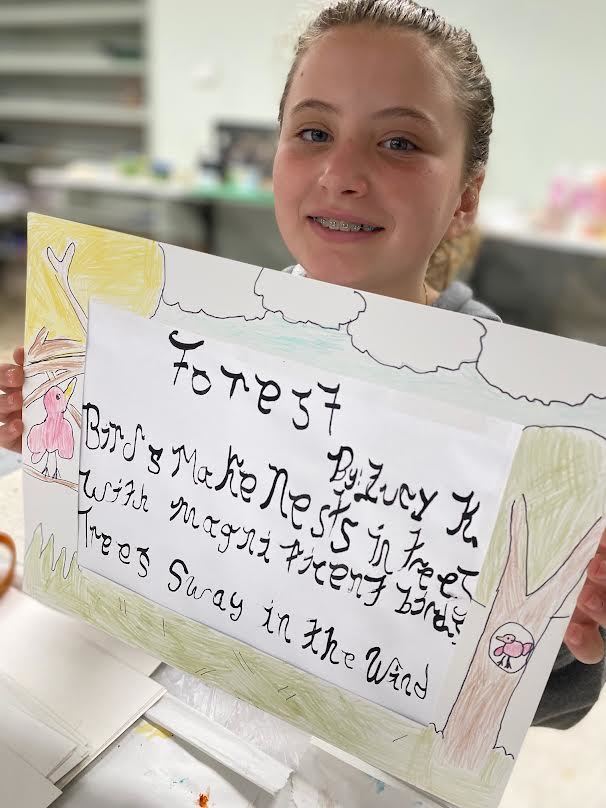 Forest
By: Lucy K.
Birds Make Nests in trees
With magnificent birds
Trees Sway in the Wind